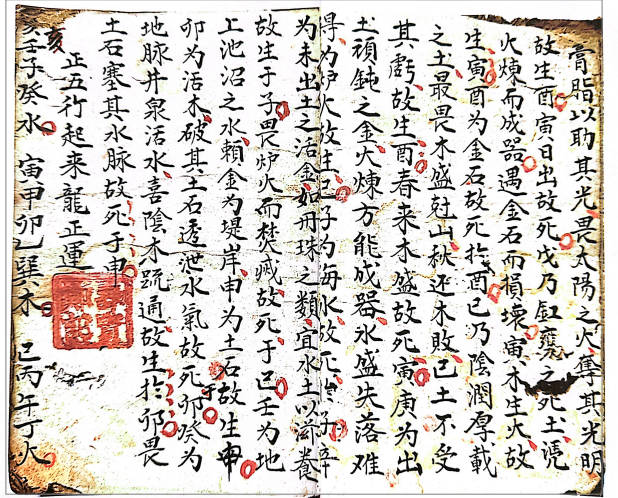 膏脂以助其光畏太陽之火奪其光明
故生酉寅日出故死戊乃缸甕之死土凴
火煉而成器遇金石而損壞寅木生火故
生寅酉为金石故死於酉己乃陰潤厚載
之土最畏木盛尅山秋还木敗己土不受
其虧故生酉春来木盛故死寅庚为出
土頑鈍之金火煉方能成器水盛失落难
得为炉火故生巳子为海水故死於子辛
为未出土之活金如丹珠之類宜水土以滋養
故生于子畏炉火而焚滅故死于巳壬为地
上池沼之水賴金为堤岸申为土石故生申
卯为活木破其土石透泄水氣故死于卯癸为
地脉井泉活水喜陰木疏通故生於卯畏
土石塞其水脉故死于申
正五行起来龍正運
亥壬子癸水 寅甲卯乙巽木 巳丙午丁火